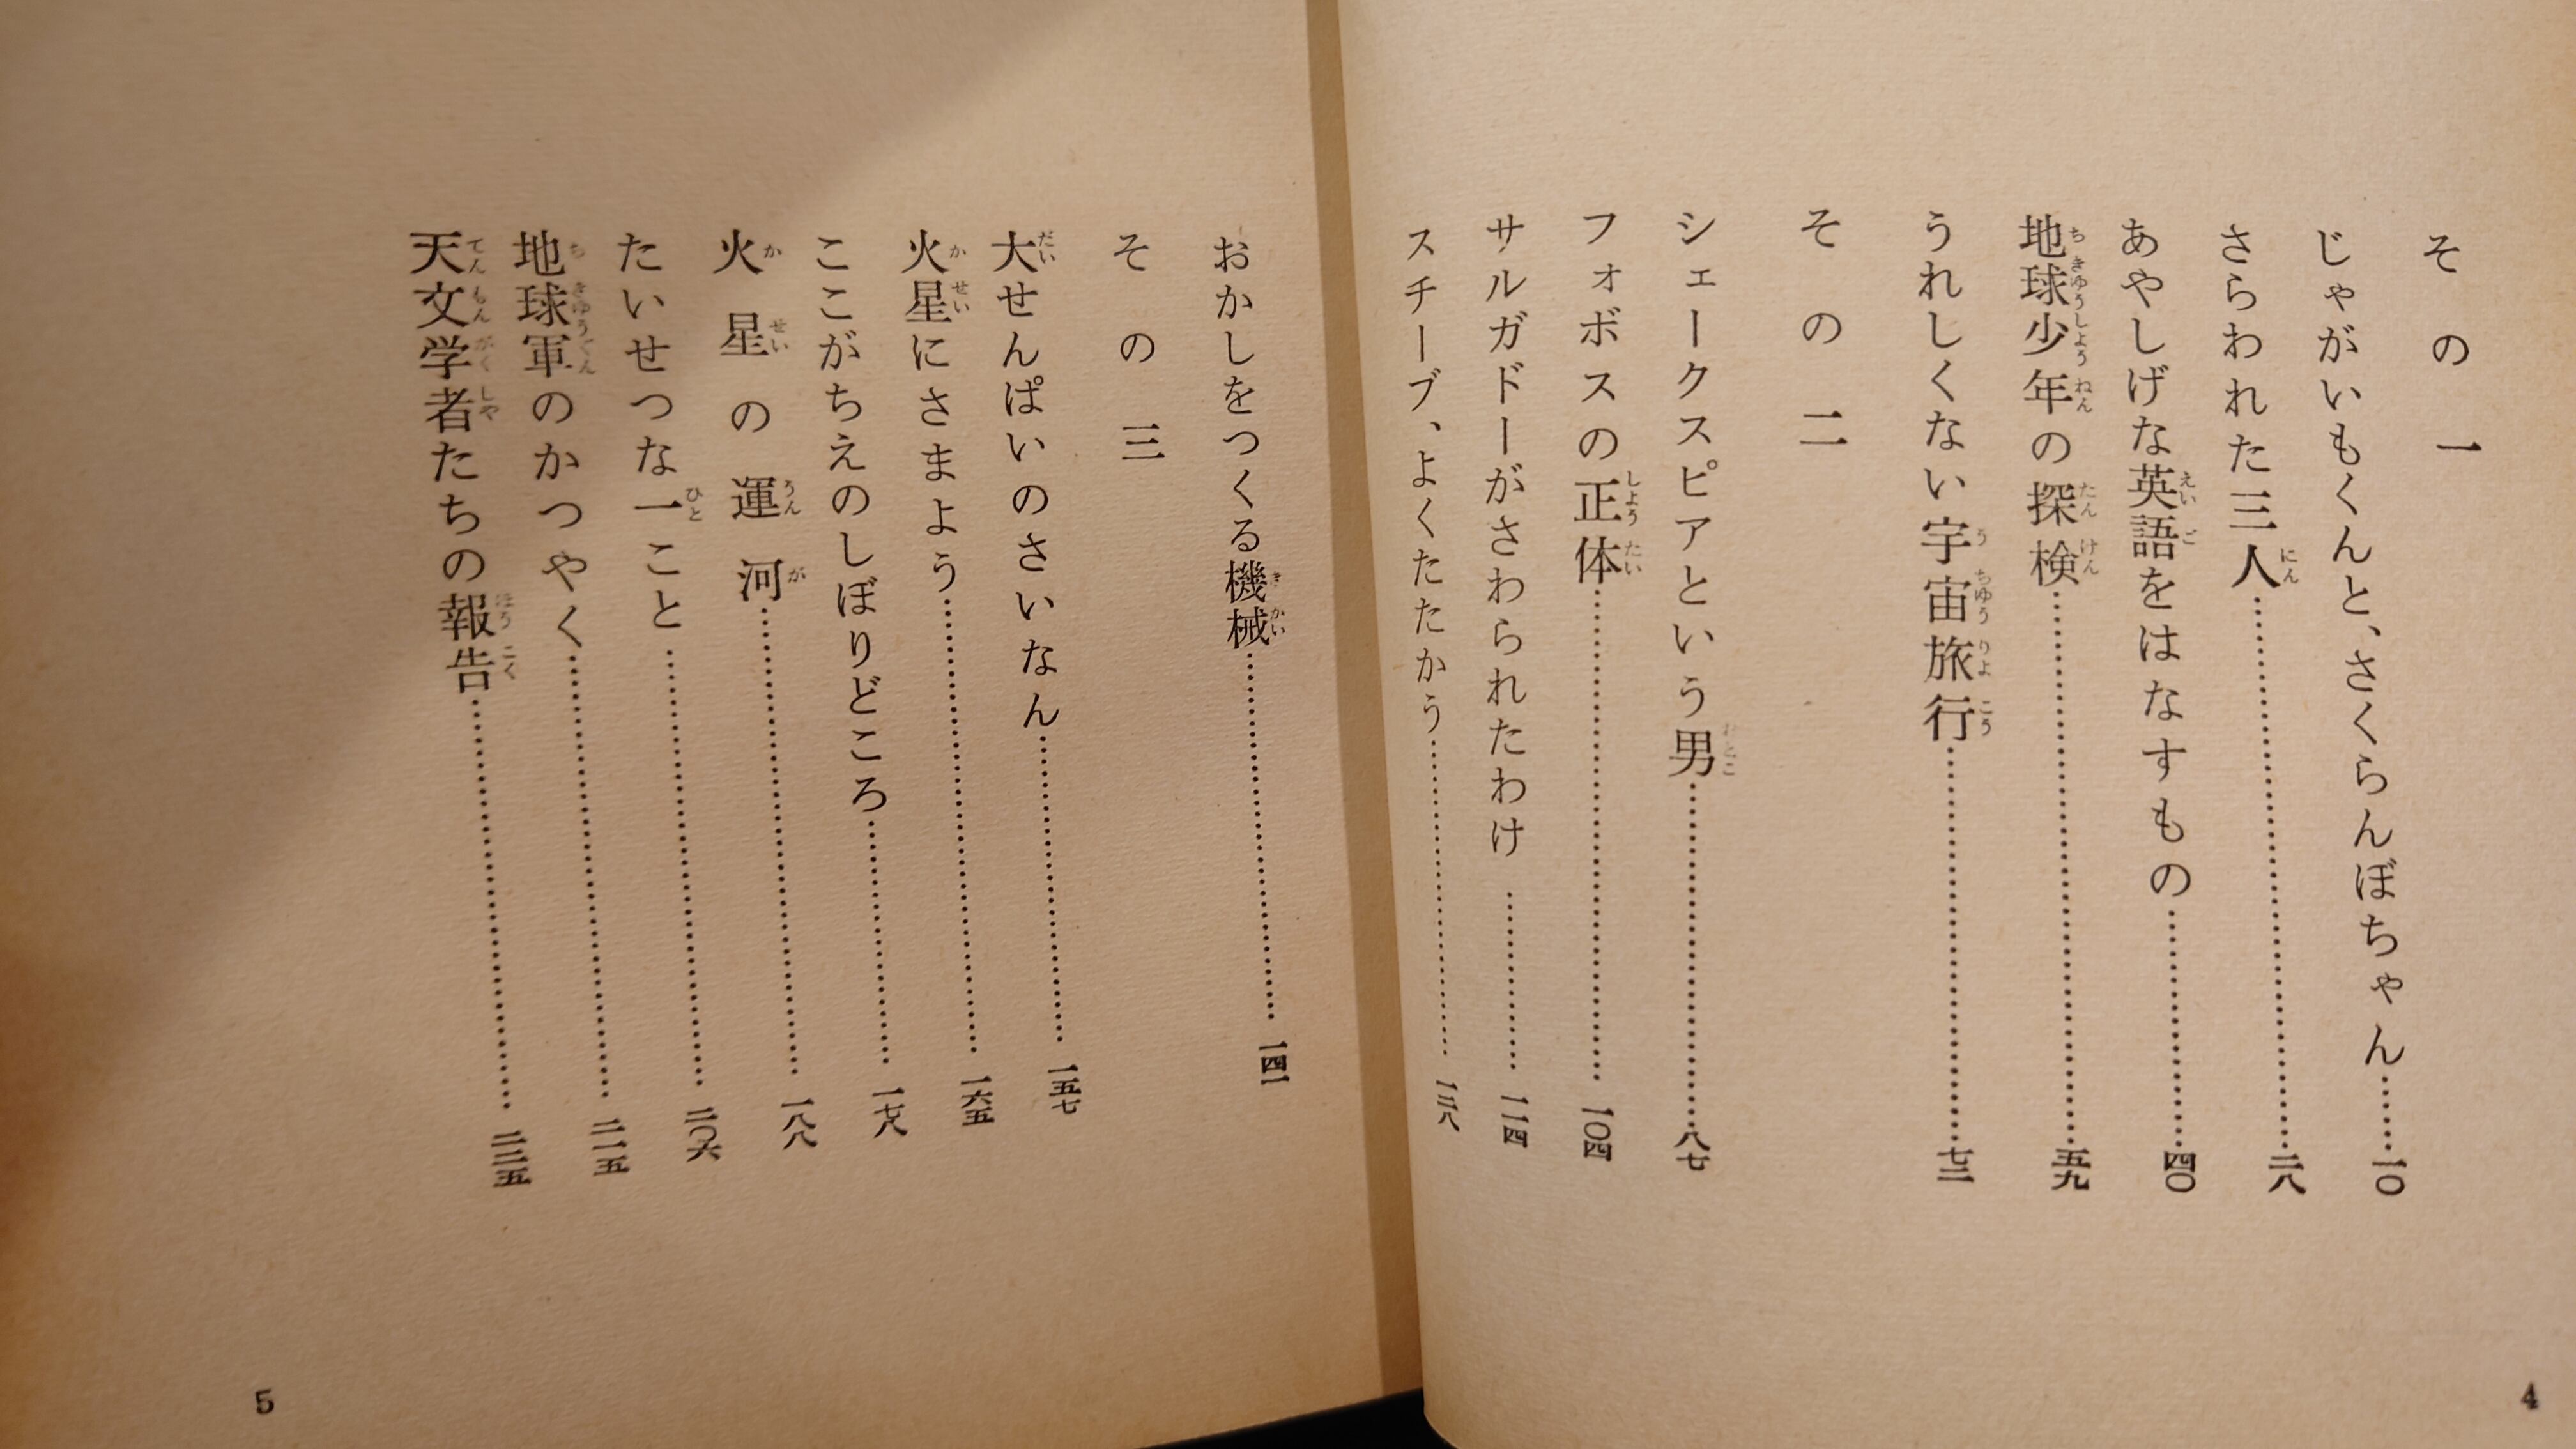 その一
じゃがいもくんと、さくらんぼちゃん……一〇
さらわれた三人……二八
あやしげな英語をはなすもの……四〇
地球少年の探検……五九
うれしくない宇宙旅行……七二
その二
シェークスピアという男……八七
フォボスの正体……一〇四
サルガドーがさわられたわけ……一一四
スチーブ、よくたたかう……一二八
4
おかしをつくる機械……一四一
その三
大せんぱいのさいなん……一五七
火星にさまよう……一六五
ここがちえのしぼりどころ……一七八
火星の運河……一八八
たいせつな一こと……二〇六
地球軍のかつやく……二一五
天文学者たちの報告……
5